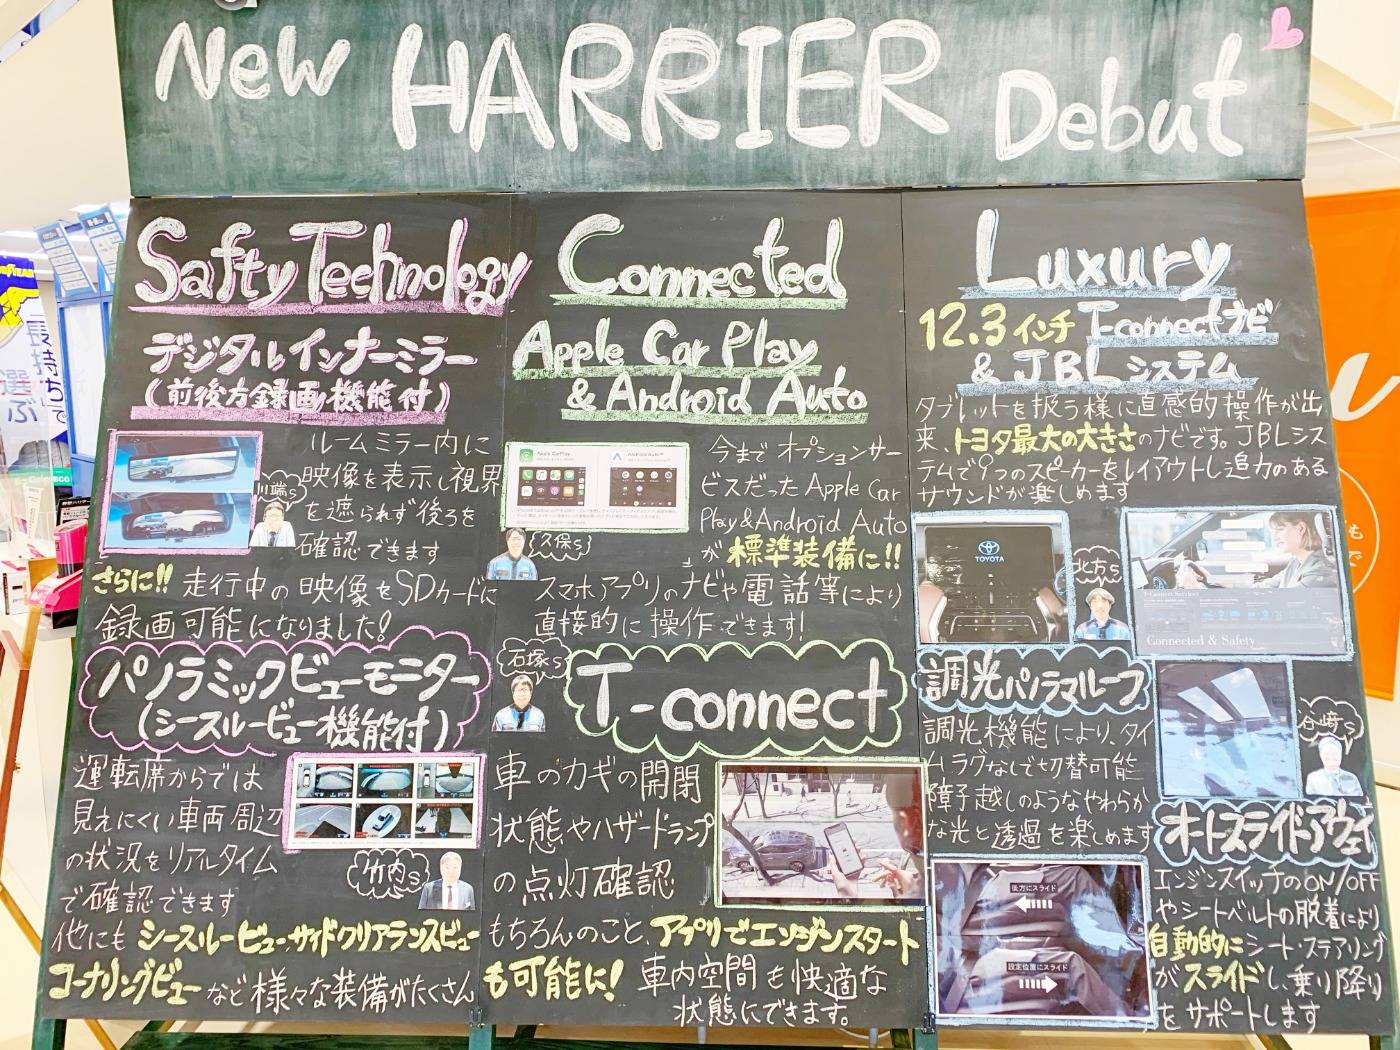 New HARRIER Debut
Safty Technology
デジタルインナーミラー
(前後方録画機能付)
ルームミラー内に
映像を表示し視界
を遮られず後ろを
確認できます
川端s
さらに!! 走行中の映像をSDカードに
録画可能になりました!
パノラミックビューモニター
(シースルービュー機能付)
運転席からでは
見えにくい車両周辺
の状況をリアルタイム
で確認できます
竹内s
他にもシースルービュー・サイドクリアランスビュー
コーナリングビューなど様々な装備がたくさん
Connected
Apple Car Play
& Android Auto
Apple CarPlay
Android Auto™
今までオプションサー
ビスだったApple Car
Play&Android Auto
が標準装備に!!
久保s
スマホアプリのナビや電話等により
直接的に操作できます!
石塚s
T-connect
車のカギの開閉
状態やハザードランプ
の点灯確認
もちろんのこと、アプリでエンジンスタート
も可能に! 車内空間を快適な
状態にできます。
Luxury
12.3インチ T-connectナビ
& JBLシステム
タブレットを扱う様に直感的操作が出
来、トヨタ最大の大きさのナビです。JBLシス
テムで9つのスピーカーをレイアウトし迫力のある
サウンドが楽しめます
TOYOTA
北方s
T-Connect Services
Connected & Safety
調光パノラマルーフ
調光機能により、タイ
ムラグなしで切替可能
障子越しのようなやわらか
な光と透過を楽しめます
谷崎s
オートスライドアウェイ
後方にスライド
設定位置にスライド
エンジンスイッチのON/OFF
やシートベルトの脱着により
自動的にシート・ステアリング
がスライドし、乗り降り
をサポートします
長持ちで
選ぶ